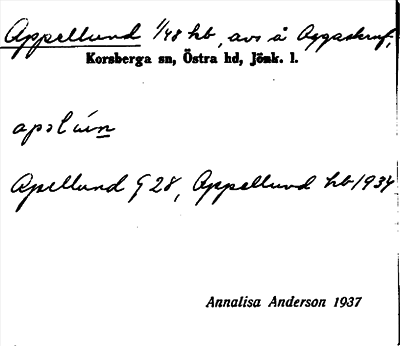 Appellund 1/48 hb, avs å Aggaskruf,
Korsberga sn, Östra hd, Jönk. l.
apəlún
Apellund G 28, Appellund hb 1934
Annalisa Anderson 1937